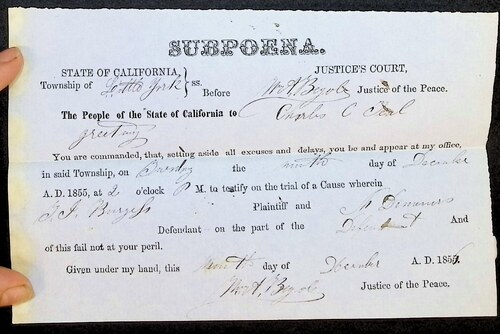 SUBPOENA.
STATE OF CALIFORNIA, JUSTICE'S COURT,
Township of Little York } ss. Before Wm A. Begole Justice of the Peace.
The People of the State of California to Charles C
greeting
You are commanded, that, setting aside all excuses and delays, you be and appear at my office,
in said Township, on the ninth day of December
A. D. 1855, at 2 o'clock P M. to testify on the trial of a Cause wherein
Burgess Plaintiff and
Defendant on the part of the Defendant And
of this fail not at your peril.
Given under my hand, this ninth day of December A. D. 1855.
Wm A. Begole Justice of the Peace.